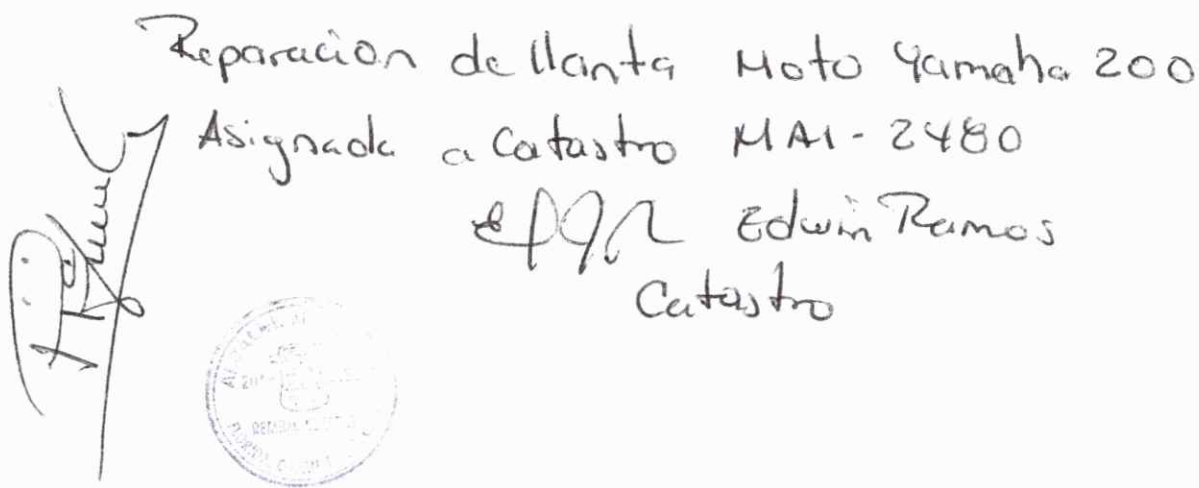 Reparacion de llanta Moto Yamaha 200
Asignada a Catastro MAI-2480
Edwin Ramos
Catastro